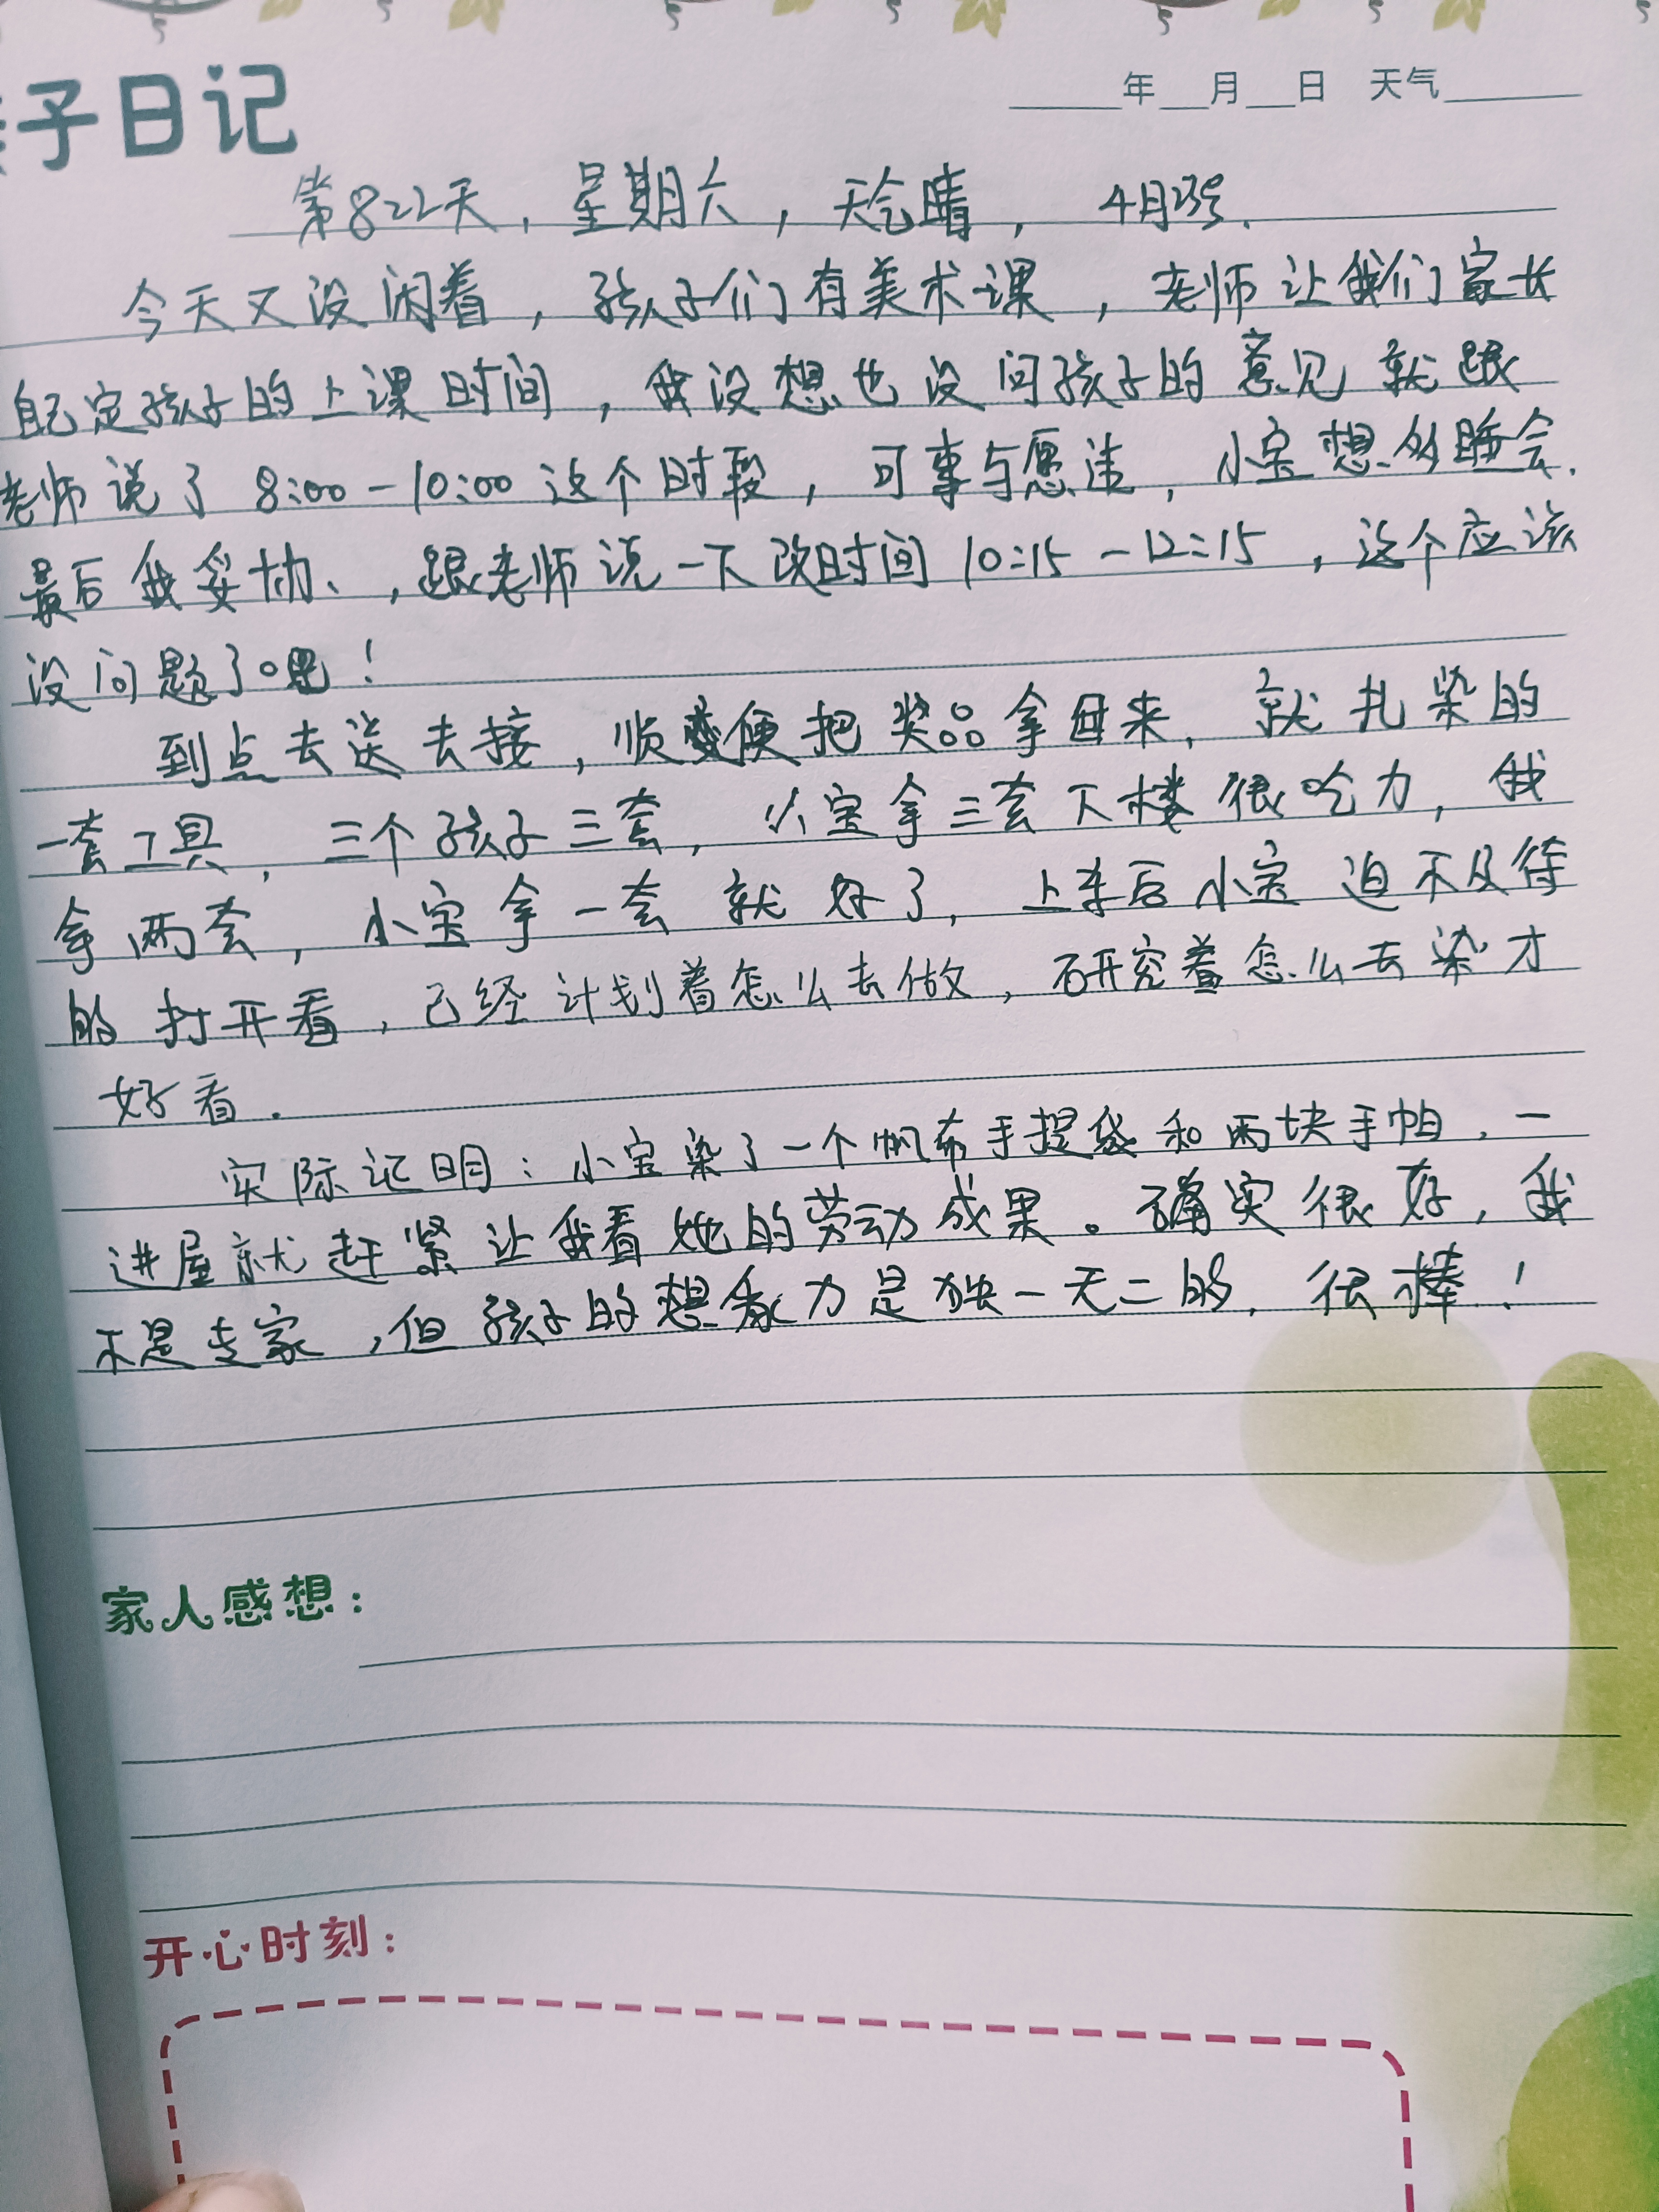 子日记
年 月 日 天气
第822天，星期六，天气晴， 4月23号.
今天又没闲着，孩子们有美术课，老师让我们家长
自己定孩子的上课时间，我没想也没问孩子的意见就跟
老师说了8:00-10:00这个时段，可事与愿违，小宝想多睡会.
最后我妥协、，跟老师说一下改时间10:15-12:15，这个应该
没问题了吧！
到点去送去接，顺便把奖品拿回来，就扎染的
一套工具，三个孩子三套，小宝拿三套下楼很吃力，我
拿两套，小宝拿一套就好了，上车后小宝迫不及待
的打开看，已经计划着怎么去做，研究着怎么去染才
好看.
实际证明：小宝染了一个帆布手提袋和两块手帕，一
进屋就赶紧让我看她的劳动成果。确实很好，我
不是专家，但孩子的想象力是独一无二的，很棒！
家人感想：
开心时刻：